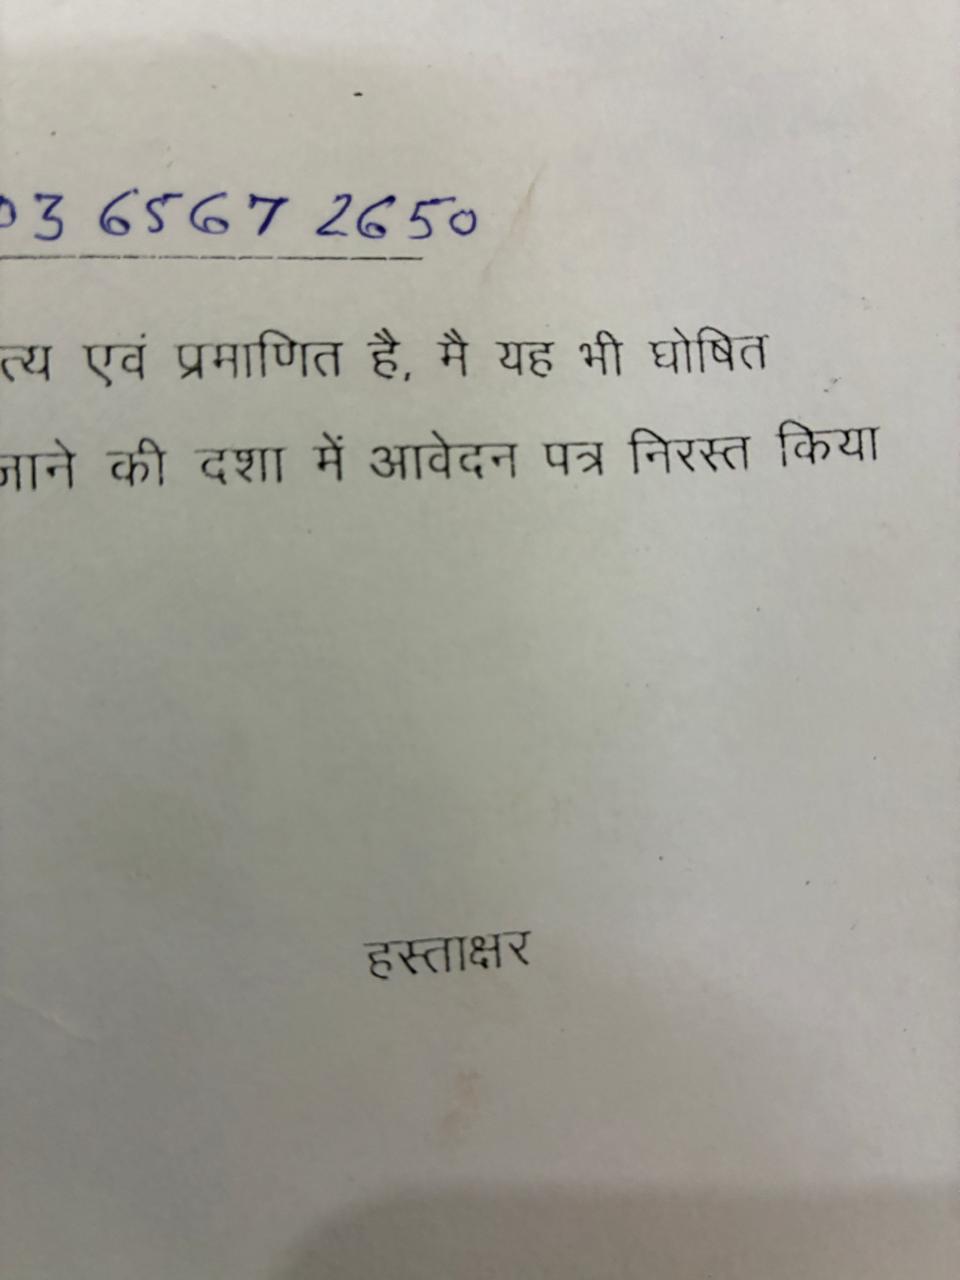 03 6567 2650
त्य एवं प्रमाणित है, मै यह भी घोषित
जाने की दशा में आवेदन पत्र निरस्त किया
हस्ताक्षर